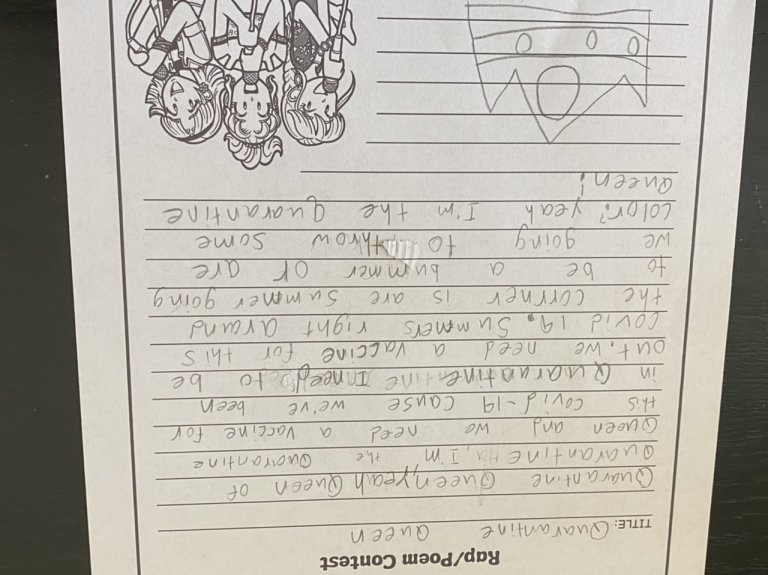 Rap/Poem Contest
TITLE: Quarantine Queen
Quarantine Queen, yeah Queen of
Quarantine, I'm the Quarantine
Queen and we need a vaccine for
this covid-19 cause we've been
in Quarantine I need to be
out, we need a vaccine for this
covid 19. Summers right arand
the corrner is are summer going
to be a bummer or are
we going to throw some
color? yeah I'm the quarantine
Queen!